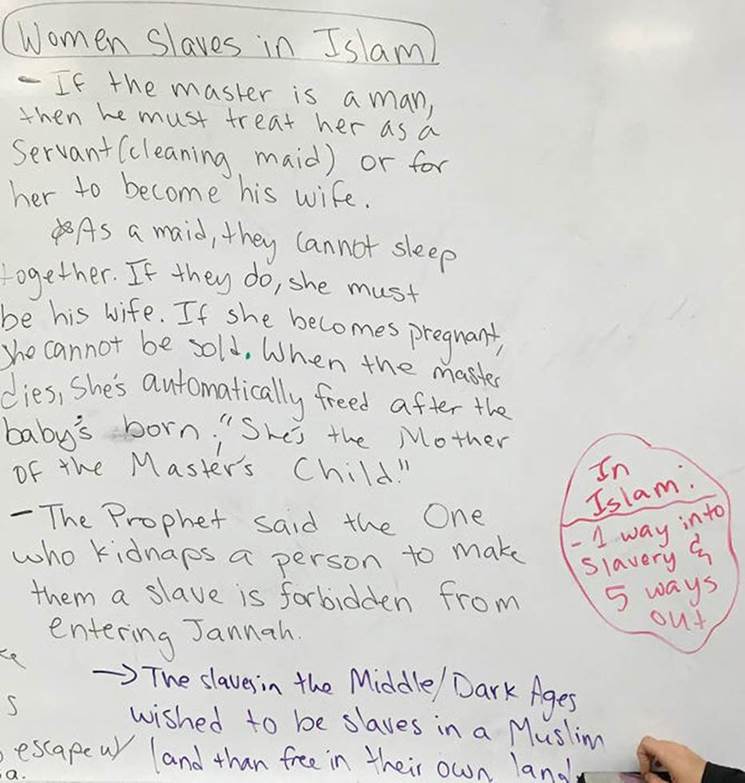 Women Slaves in Islam
- If the master is a man,
then he must treat her as a
Servant (cleaning maid) or for
her to become his wife.
As a maid, they cannot sleep
together. If they do, she must
be his wife. If she becomes pregnant,
she cannot be sold. When the master
dies, She's automatically freed after the
baby's born; "She's the Mother
OF the Master's Child."
- The Prophet said the One
who kidnaps a person to make
them a slave is forbidden from
entering Jannah.
→ The slaves in the Middle/Dark Ages
wished to be slaves in a Muslim
land than free in their own land
s
escape w/
a.
In
Islam:
- 1 way into
Slavery &
5 ways
out